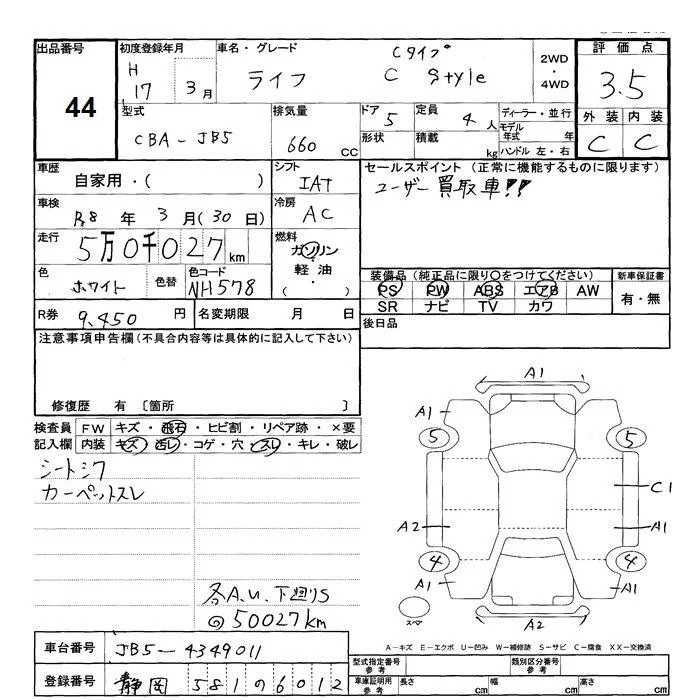 出品番号 初度登録年月 車名・グレード 2WD・4WD 評価点
44 H17 3月 ライフ Cタイプ C Style 3.5
型式 排気量 ドア 定員 ディーラー・並行 外装 内装
CBA-JB5 660 CC 5 4人 モデル年式 年 C C
形状 積載 kg ハンドル 左・右
車歴 シフト セールスポイント (正常に機能するものに限ります)
自家用・( ) IAT ユーザー買取車!!
車検 冷房
R8年 3月(30日) AC
走行 燃料
5万0千027km ガソリン
軽油・( )
色 色替 色コード 装備品 (純正品に限り〇をつけてください) 新車保証書
ホワイト NH578 PS PW ABS エアB AW 有・無
SR ナビ TV カワ
R券 9,450円 名変期限 月 日 後日品
注意事項申告欄(不具合内容等は具体的に記入して下さい)
修復歴 有 〔箇所 〕
検査員 FW キズ・飛石・ヒビ割・リペア跡・×要
記入欄 内装 キズ・汚レ・コゲ・穴・スレ・キレ・破レ
シートシワ
カーペットスレ
各A.U.下廻りS
@50027km
A1
A1
5 5
C1
A2 A1
4 4
A1 A1
スペア A2
A-キズ E-エクボ U-凹み W-補修跡 S-サビ C-腐食 XX-交換済
車台番号 JB5-4349011
型式指定番号 参考 類別区分番号 参考
登録番号 静岡 581 の 6012
車庫証明用 参考 長さ cm 幅 cm 高さ cm